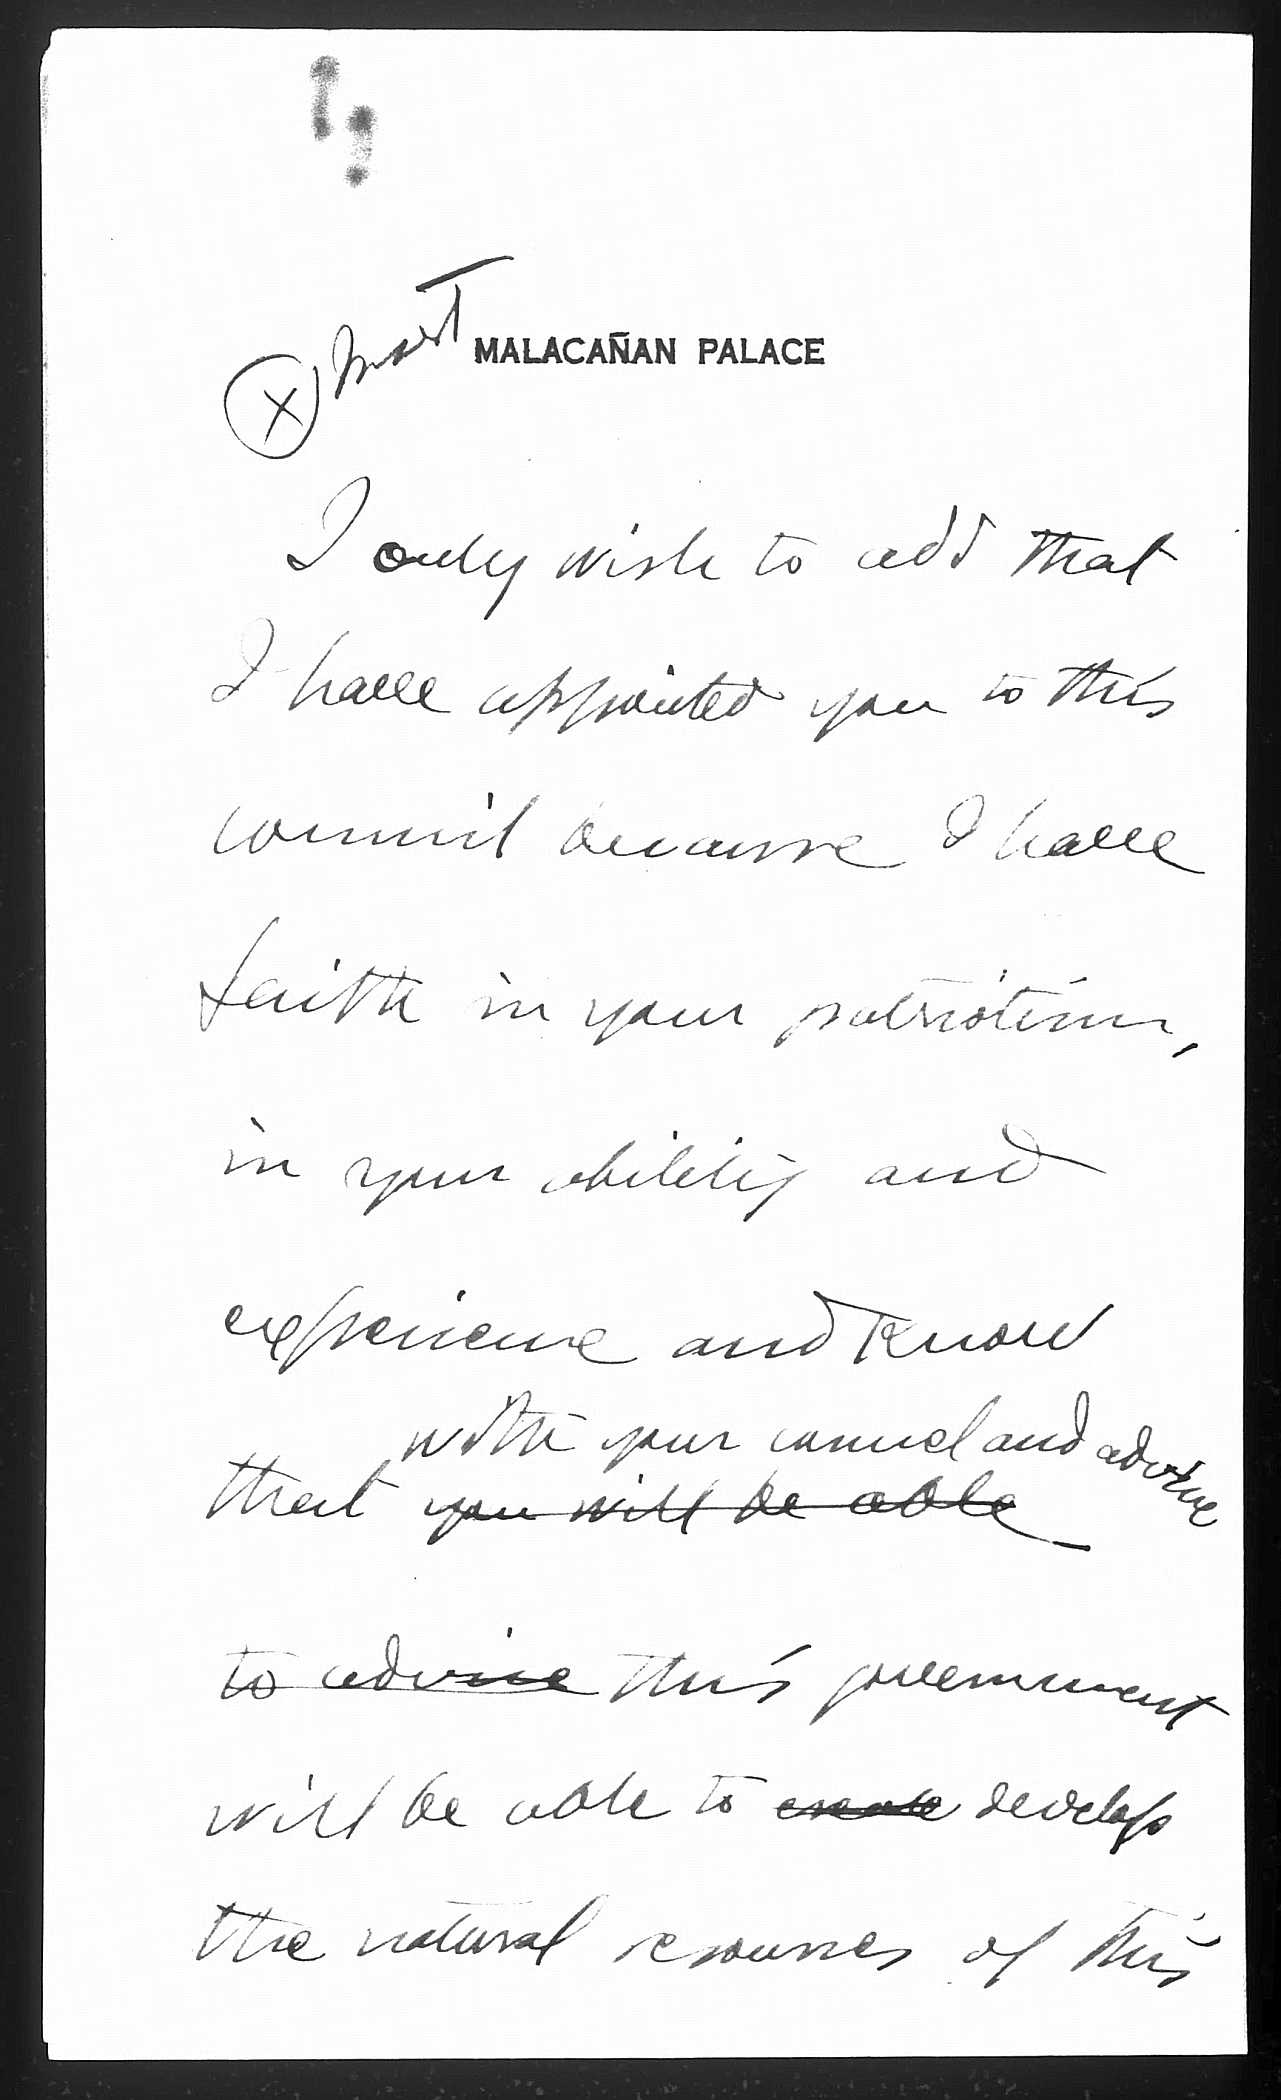 Insert
MALACAÑAN PALACE
X
I only wish to add that
I have appointed you to this
council because I have
faith in your patriotism,
in your ability and
experience and know
with your counsel and advice
that you will be able
to advise this government
will be able to create develop
the natural resources of this